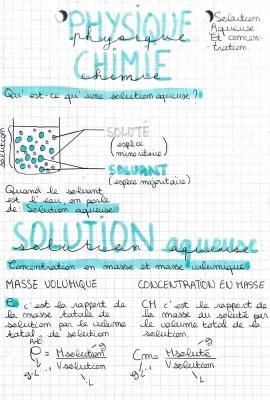 PHYSIQUE
physique
CHIMIE
chimie
Solution
Aqueuse
Et concen-
-tration.
Qu'est-ce qu'une solution aqueuse ?
solution
SOLUTÉ
(espèce
minoritaire)
SOLVANT
(espèce majoritaire)
Quand le solvant
est l'eau, on parle
de: Solution aqueuse
SOLUTION
solution aqueuse
Concentration en masse et masse volumique
MASSE VOLUMIQUE
ρ c'est le rapport de
la masse totale de
solution par le volume
total de solution
Rho
ρ = Msolution g
g/L Vsolution
L
CONCENTRATION EN MASSE
CM c'est le rapport de
la masse du soluté par
le volume total de la
solution.
Cm = Msoluté g
g/L Vsolution
L